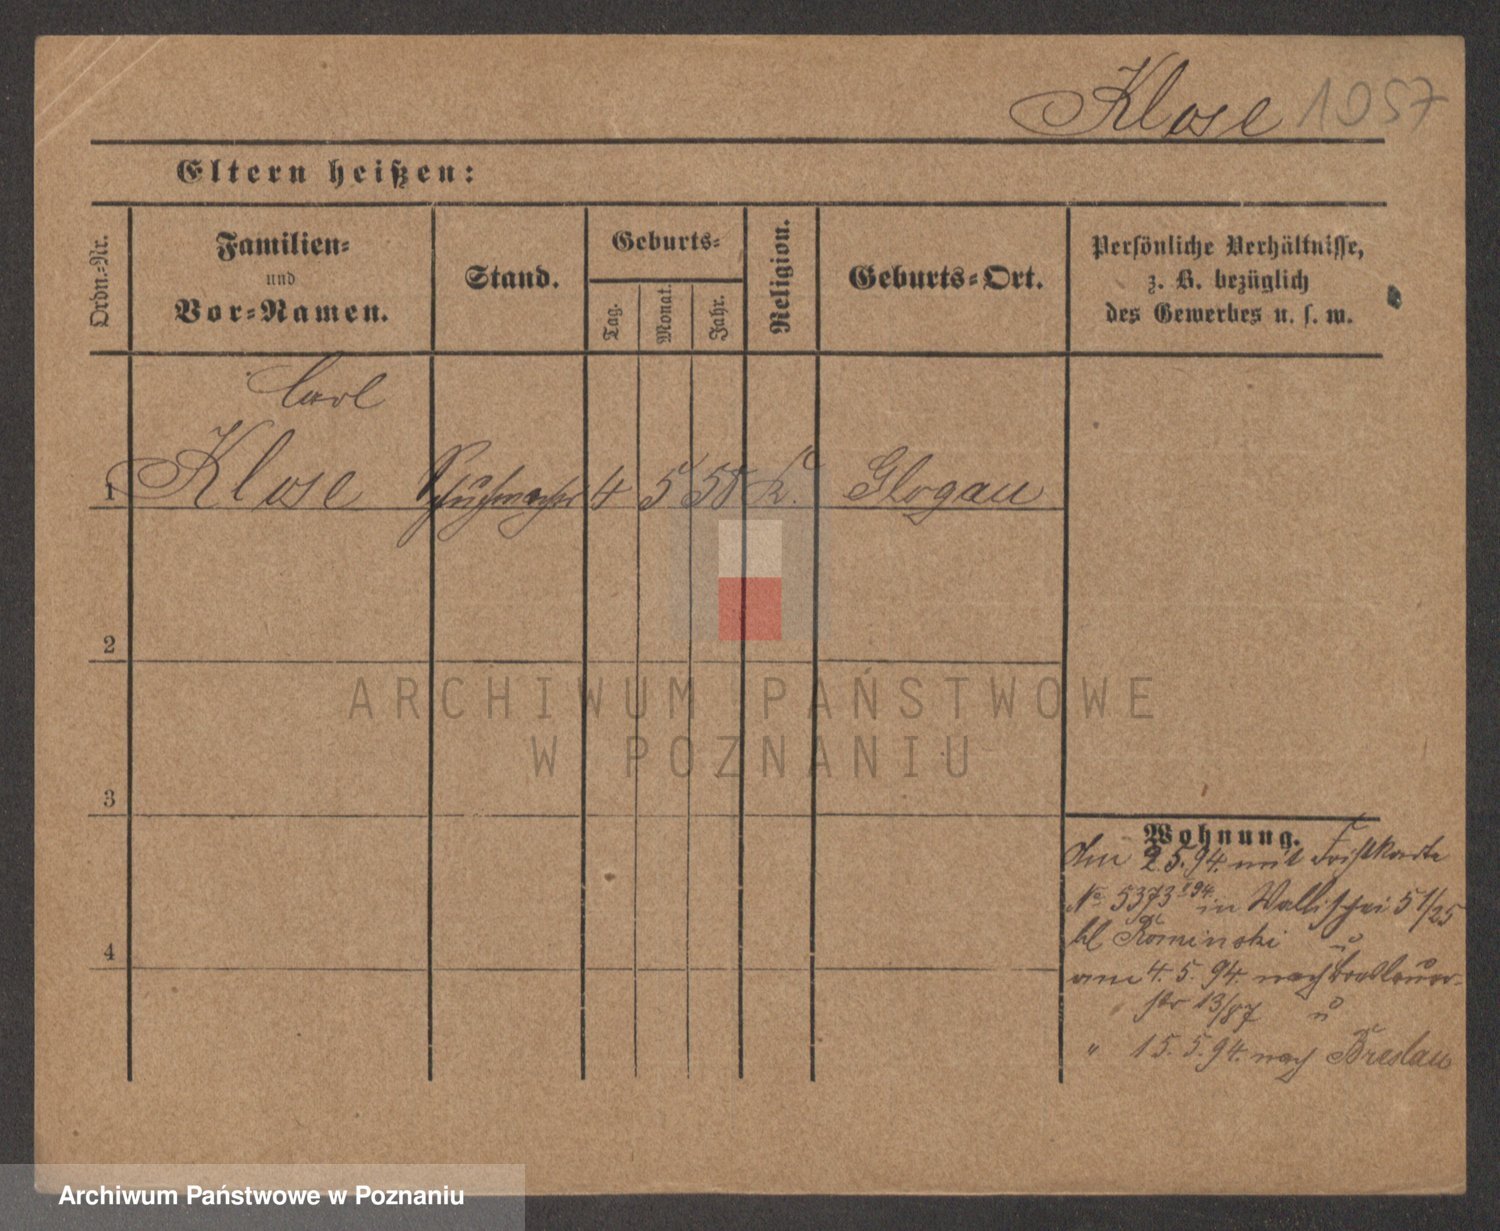 Klose 1057
Eltern heißen:
Ordn.-Nr.
Familien-
und
Vor-Namen.
Stand.
Geburts-
Tag.
Monat.
Jahr.
Religion.
Geburts-Ort.
Persönliche Verhältnisse,
z. B. bezüglich
des Gewerbes u. s. w.
Carl
1 Klose Schuhmacher 4 5 58 K. Glogau
2
3
4
Wohnung.
Am 2.5.94. mit Fristkarte
No 5373 94. in Wallischei 51/25
bl Kominski u
am 4. 5. 94. nach Breslauer-
" str 13/87 u
" 15. 5. 94. nach Breslau
ARCHIWUM PAŃSTWOWE
W POZNANIU
Archiwum Państwowe w Poznaniu